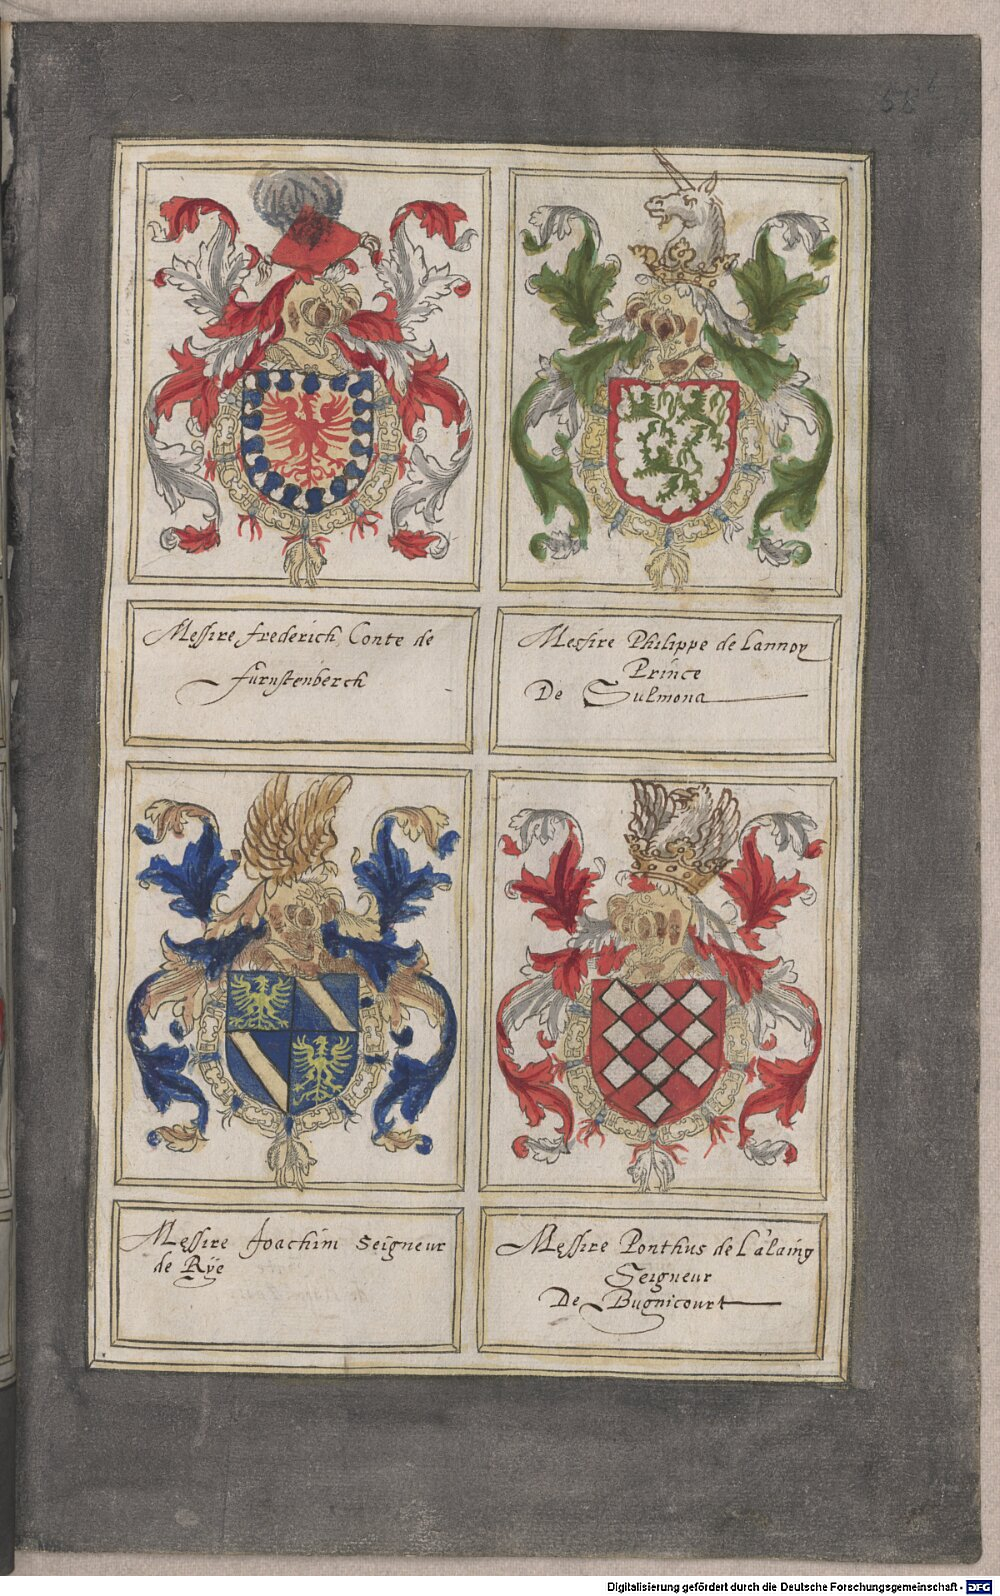 58
Messire frederich Conte de
furnstenberch
Messire Philippe de Lannoy
Prince
De Sulmona
Messire Joachim Seigneur
de Rÿe
Messire Ponthus de Lalaing
Seigneur
De Bugnicourt
Digitalisierung gefördert durch die Deutsche Forschungsgemeinschaft - DFG